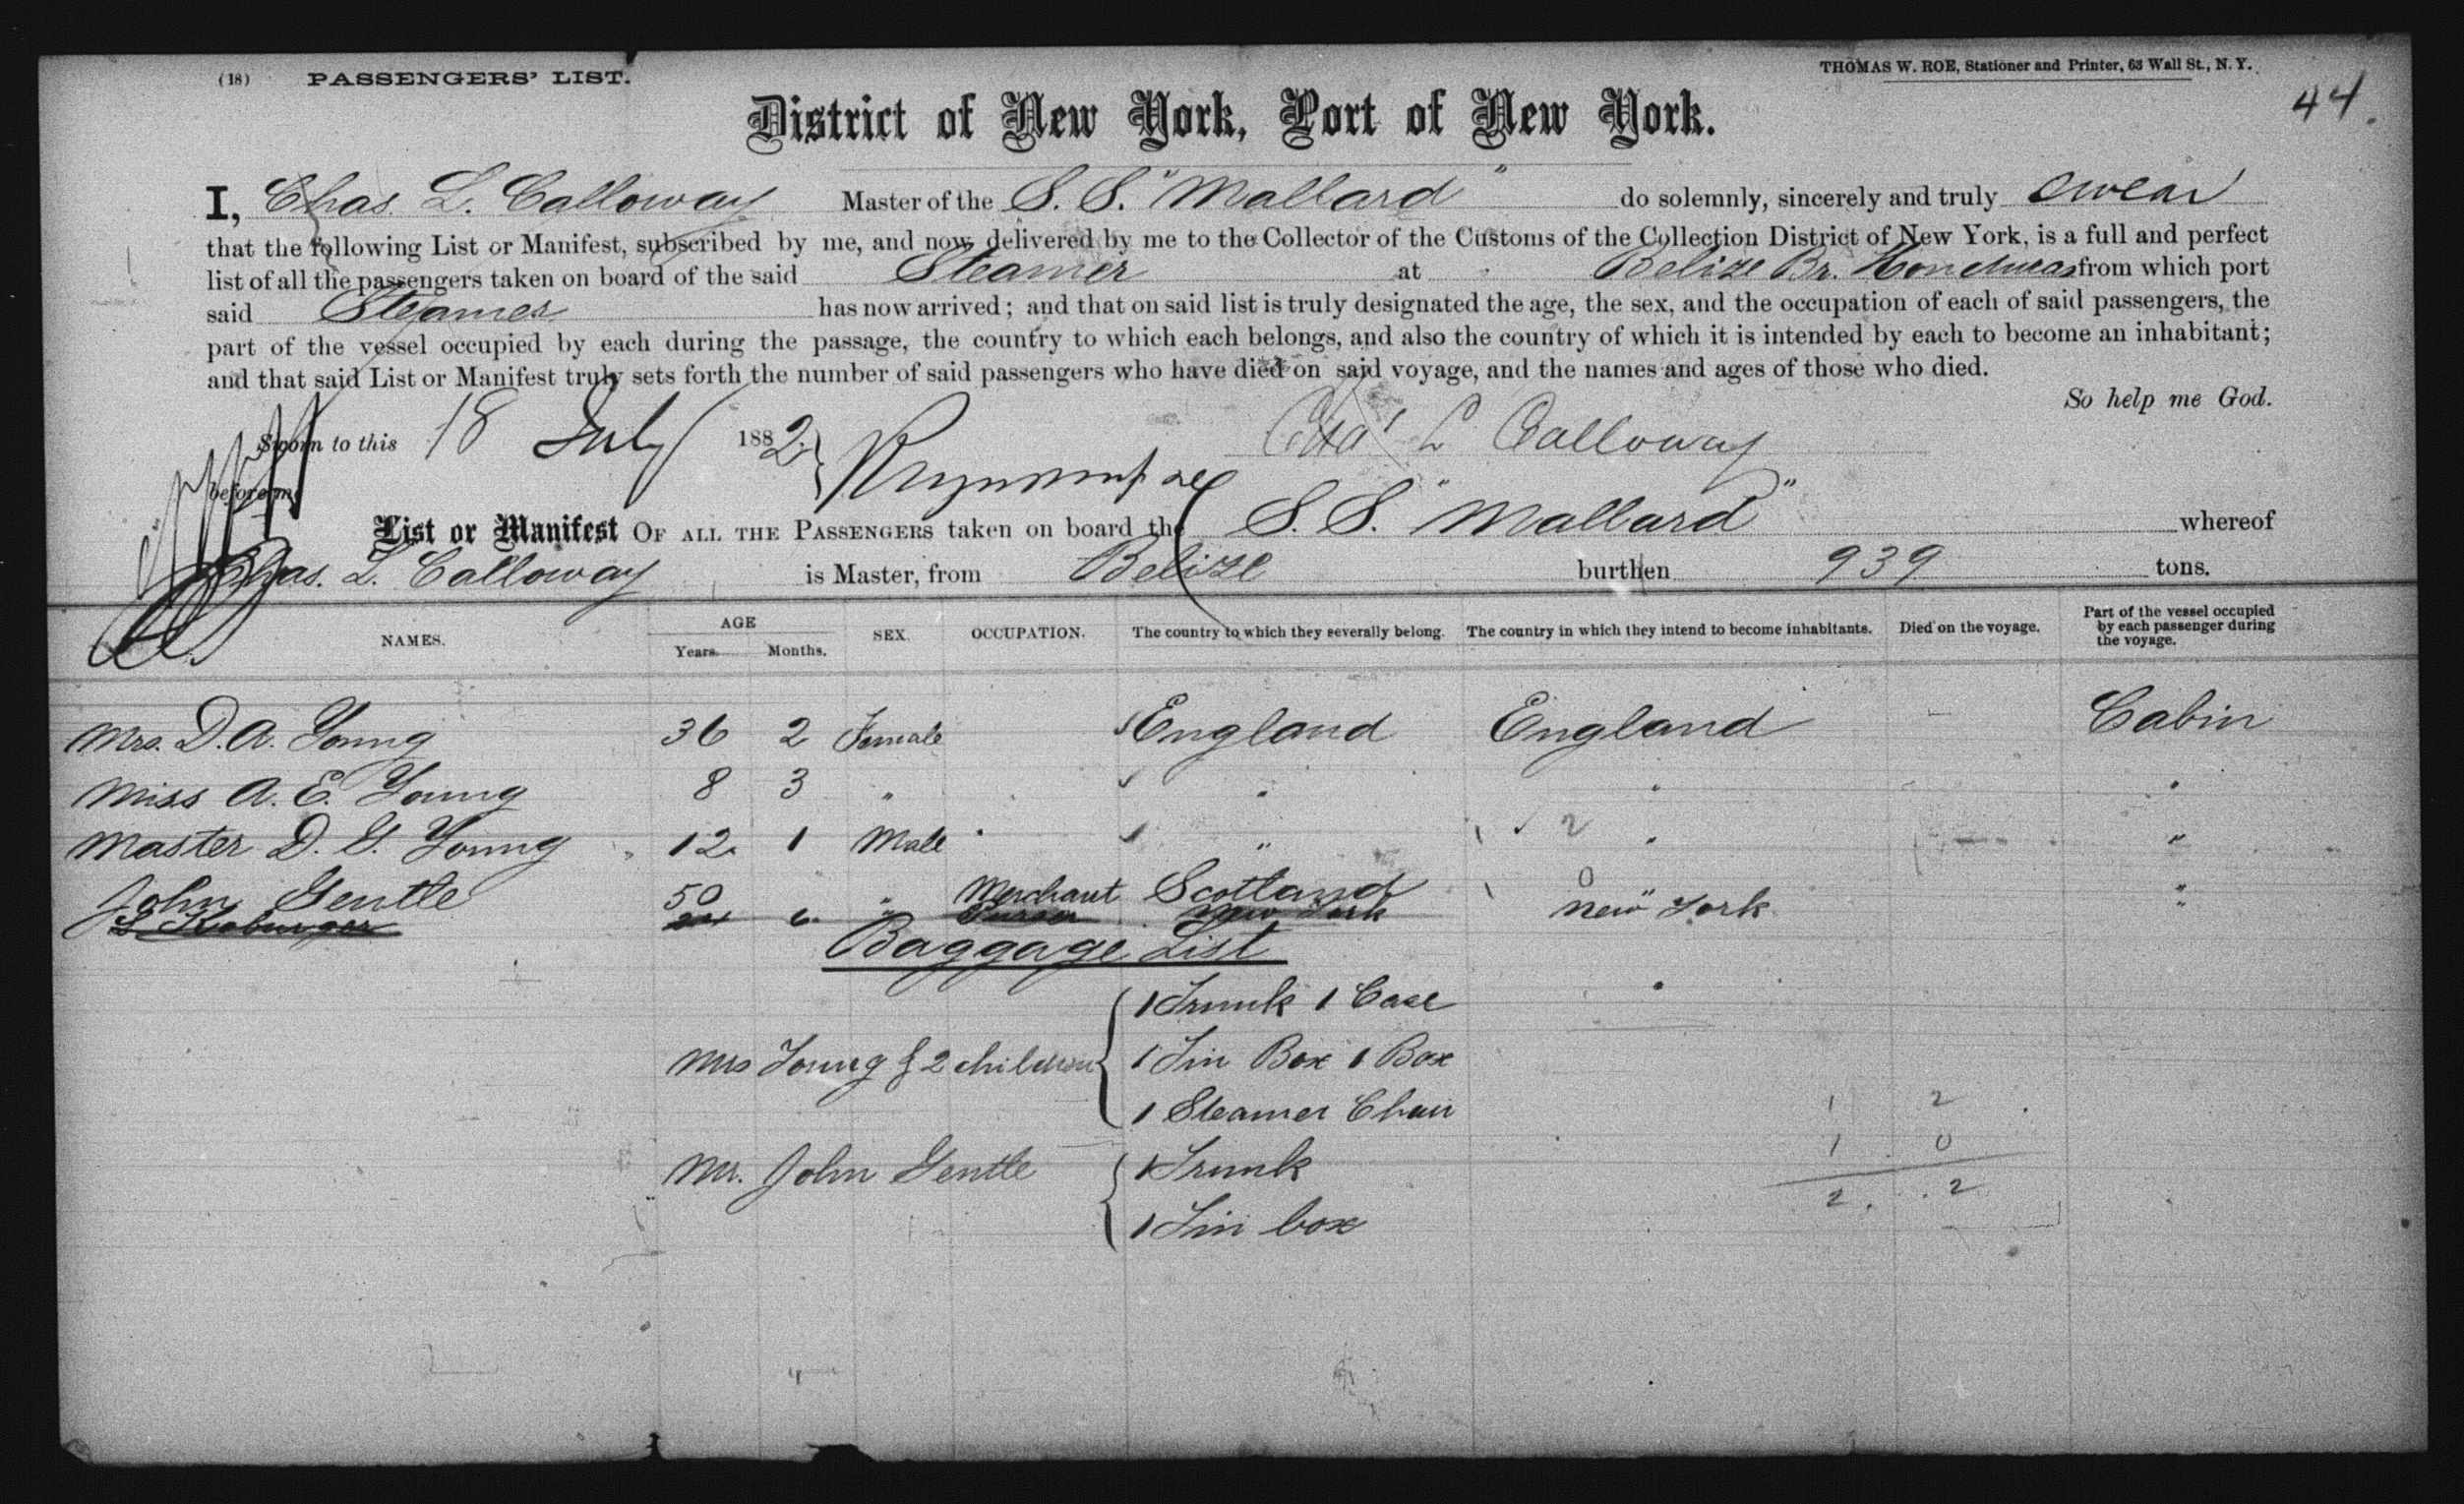 (18) PASSENGERS' LIST.
THOMAS W. ROE, Stationer and Printer, 63 Wall St., N. Y.
44.
District of New York, Port of New York.
I, Chas. L. Calloway Master of the S. S. "Mallard" do solemnly, sincerely and truly swear
that the following List or Manifest, subscribed by me, and now delivered by me to the Collector of the Customs of the Collection District of New York, is a full and perfect
list of all the passengers taken on board of the said Steamer at Belize Br. Honduras from which port
said Steamer has now arrived; and that on said list is truly designated the age, the sex, and the occupation of each of said passengers, the
part of the vessel occupied by each during the passage, the country to which each belongs, and also the country of which it is intended by each to become an inhabitant;
and that said List or Manifest truly sets forth the number of said passengers who have died on said voyage, and the names and ages of those who died.
So help me God.
Sworn to this 18 July 1882. Chas L Calloway
before me
List or Manifest OF ALL THE PASSENGERS taken on board the S. S. "Mallard" whereof
Chas. L. Calloway is Master, from Belize burthen 939 tons.
NAMES. AGE Years. Months. SEX. OCCUPATION. The country to which they severally belong. The country in which they intend to become inhabitants. Died on the voyage. Part of the vessel occupied by each passenger during the voyage.
Mrs. D. A. Young 36 2 Female England England - Cabin
Miss A. E. Young 8 3 " " " - "
Master D. G. Young 12 1 Male " 2 " - "
John Gentle 50 " Merchant Scotland 0 " "
6 Purser New York New York
Baggage List
Mrs Young & 2 children { 1 Trunk 1 Case
1 Tin Box 1 Box
1 Steamer Chair
Mr. John Gentle { 1 Trunk
1 Tin box
1 2
1 0
2. 2